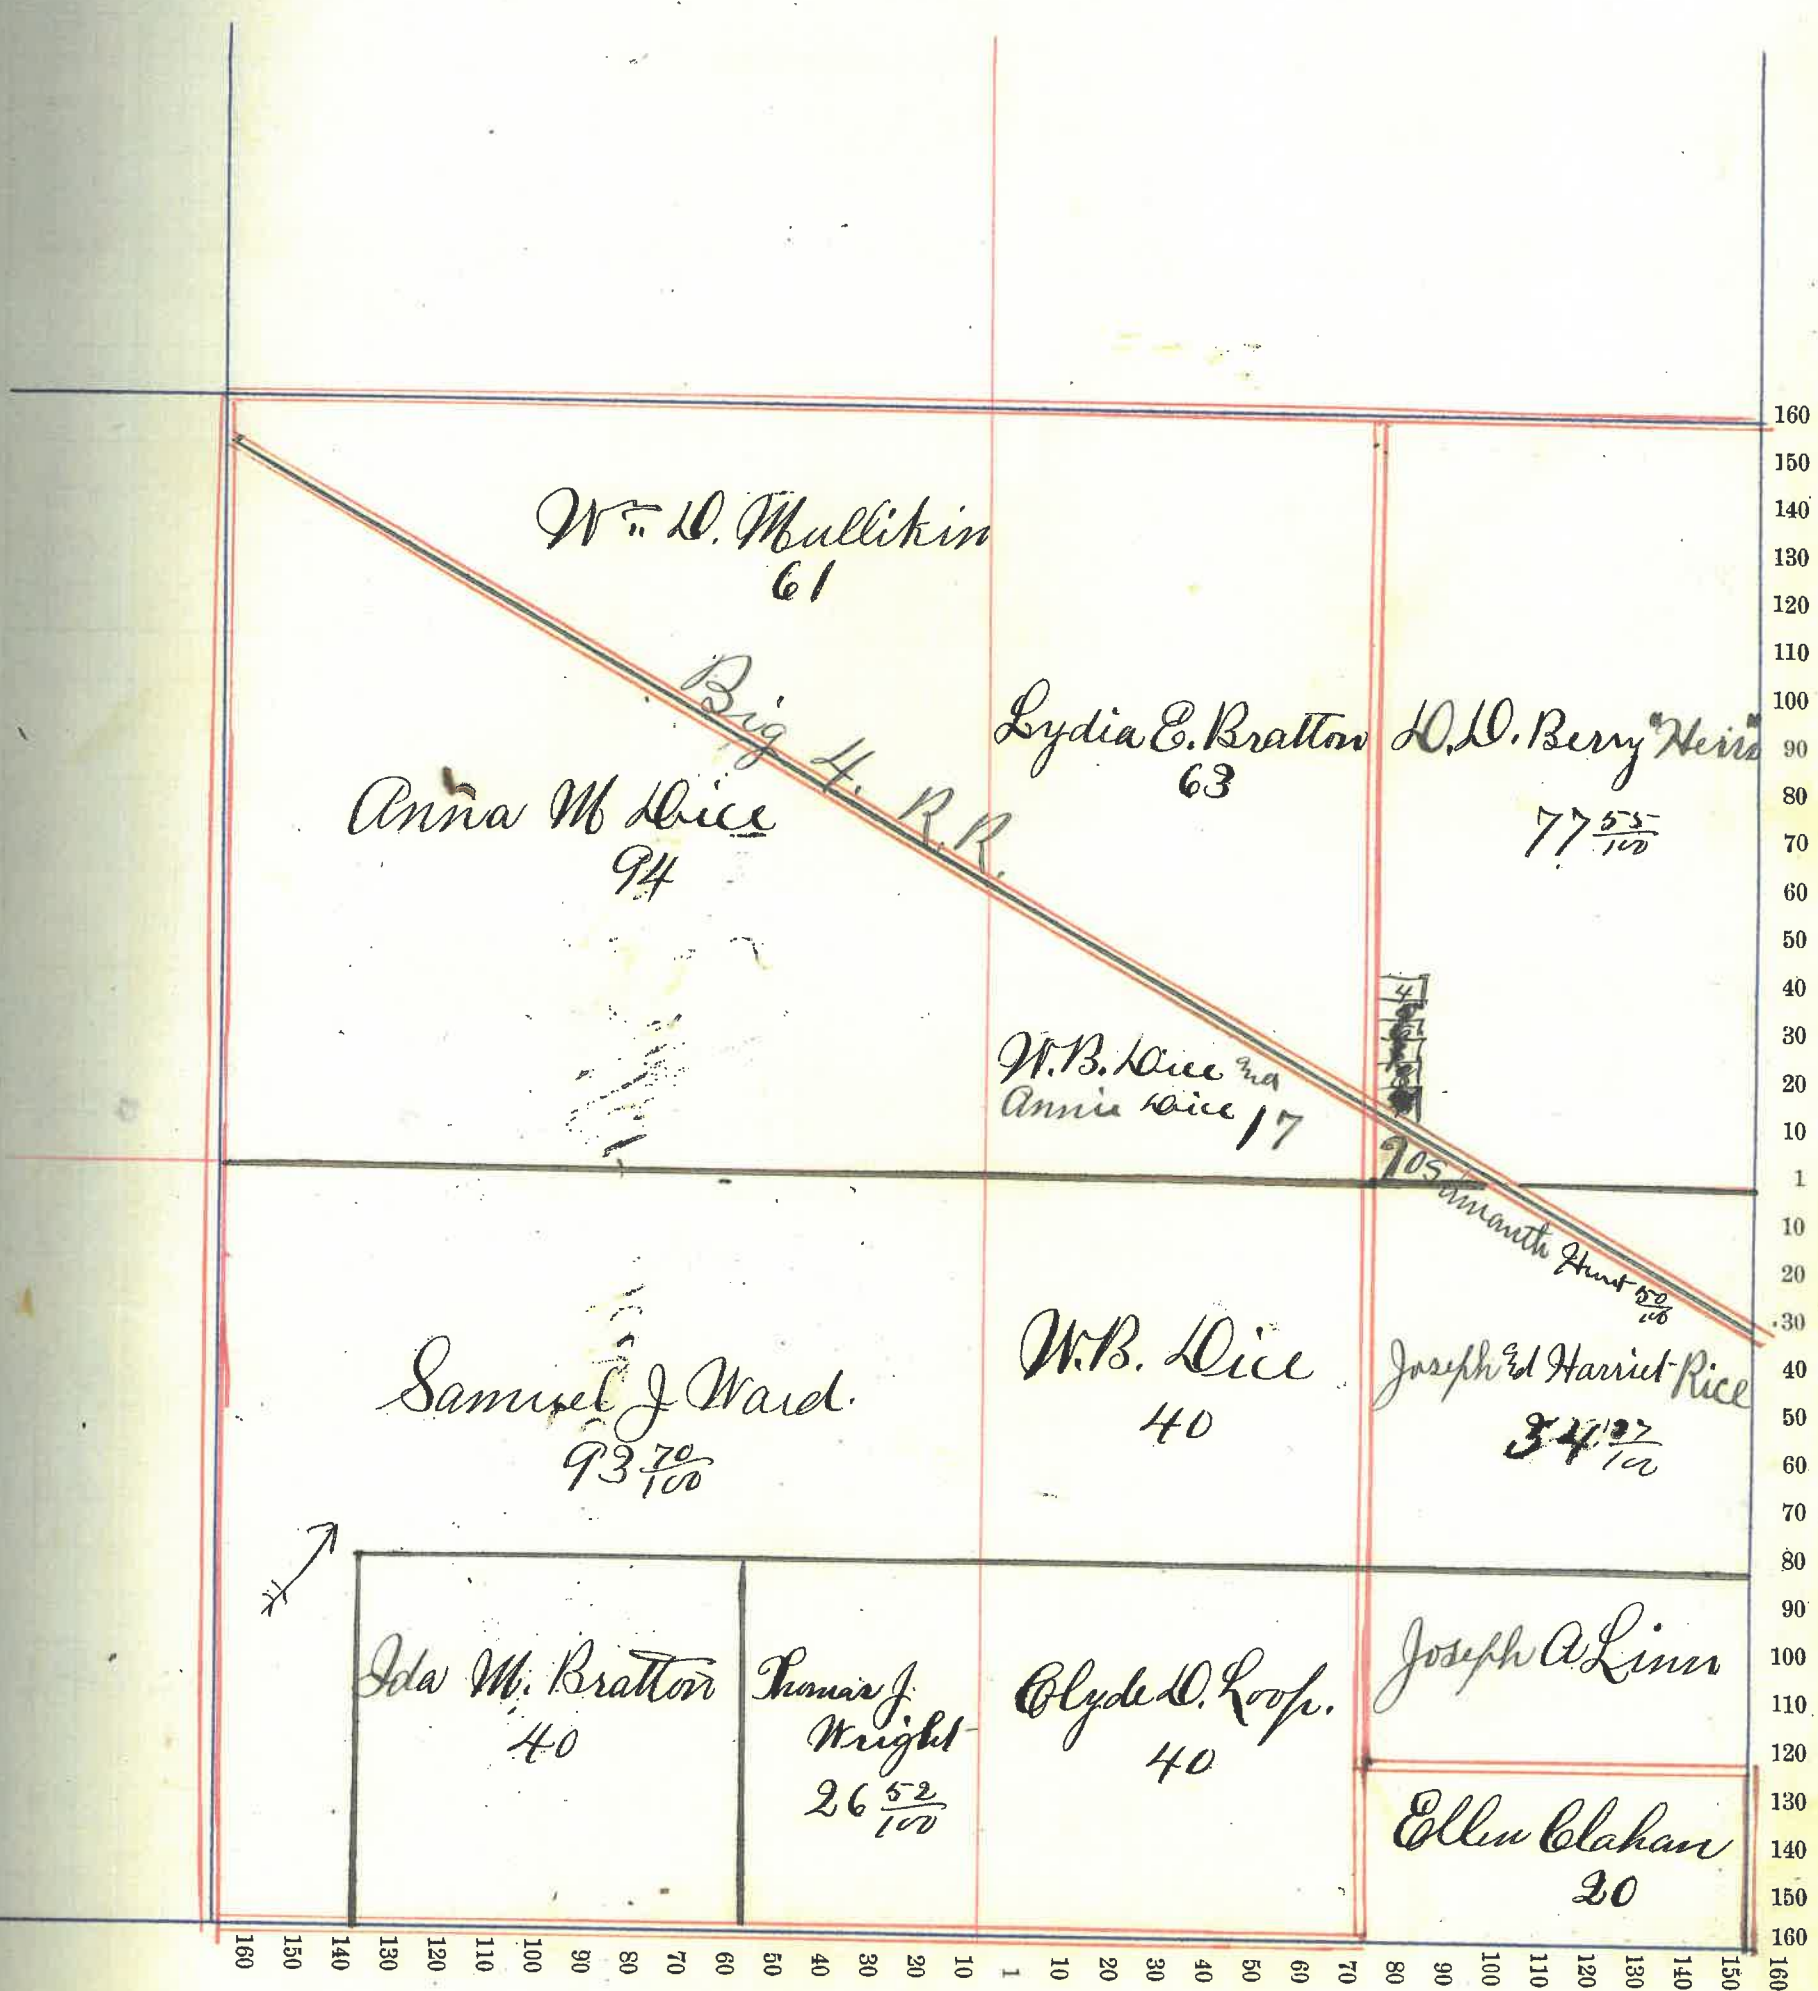 Wm D. Mullikin
61
Big 4. R.R.
Lydia E. Bratton
63
D.D. Berry "Heirs"
77 55/100
Anna M Dice
94
W.B. Dice and
Annie Dice 17
4
Samanth Hunt 50/100
Samuel J Ward.
93 70/100
W.B. Dice
40
Joseph Ed Harriet Rice
34
Ida M. Bratton
40
Thomas J.
Wright
26 52/100
Clyde D. Loop.
40
Joseph A Linn
Ellen Clahan
20
160
150
140
130
120
110
100
90
80
70
60
50
40
30
20
10
1
10
20
30
40
50
60
70
80
90
100
110
120
130
140
150
160
160 150 140 130 120 110 100 90 80 70 60 50 40 30 20 10 1 10 20 30 40 50 60 70 80 90 100 110 120 130 140 150 160